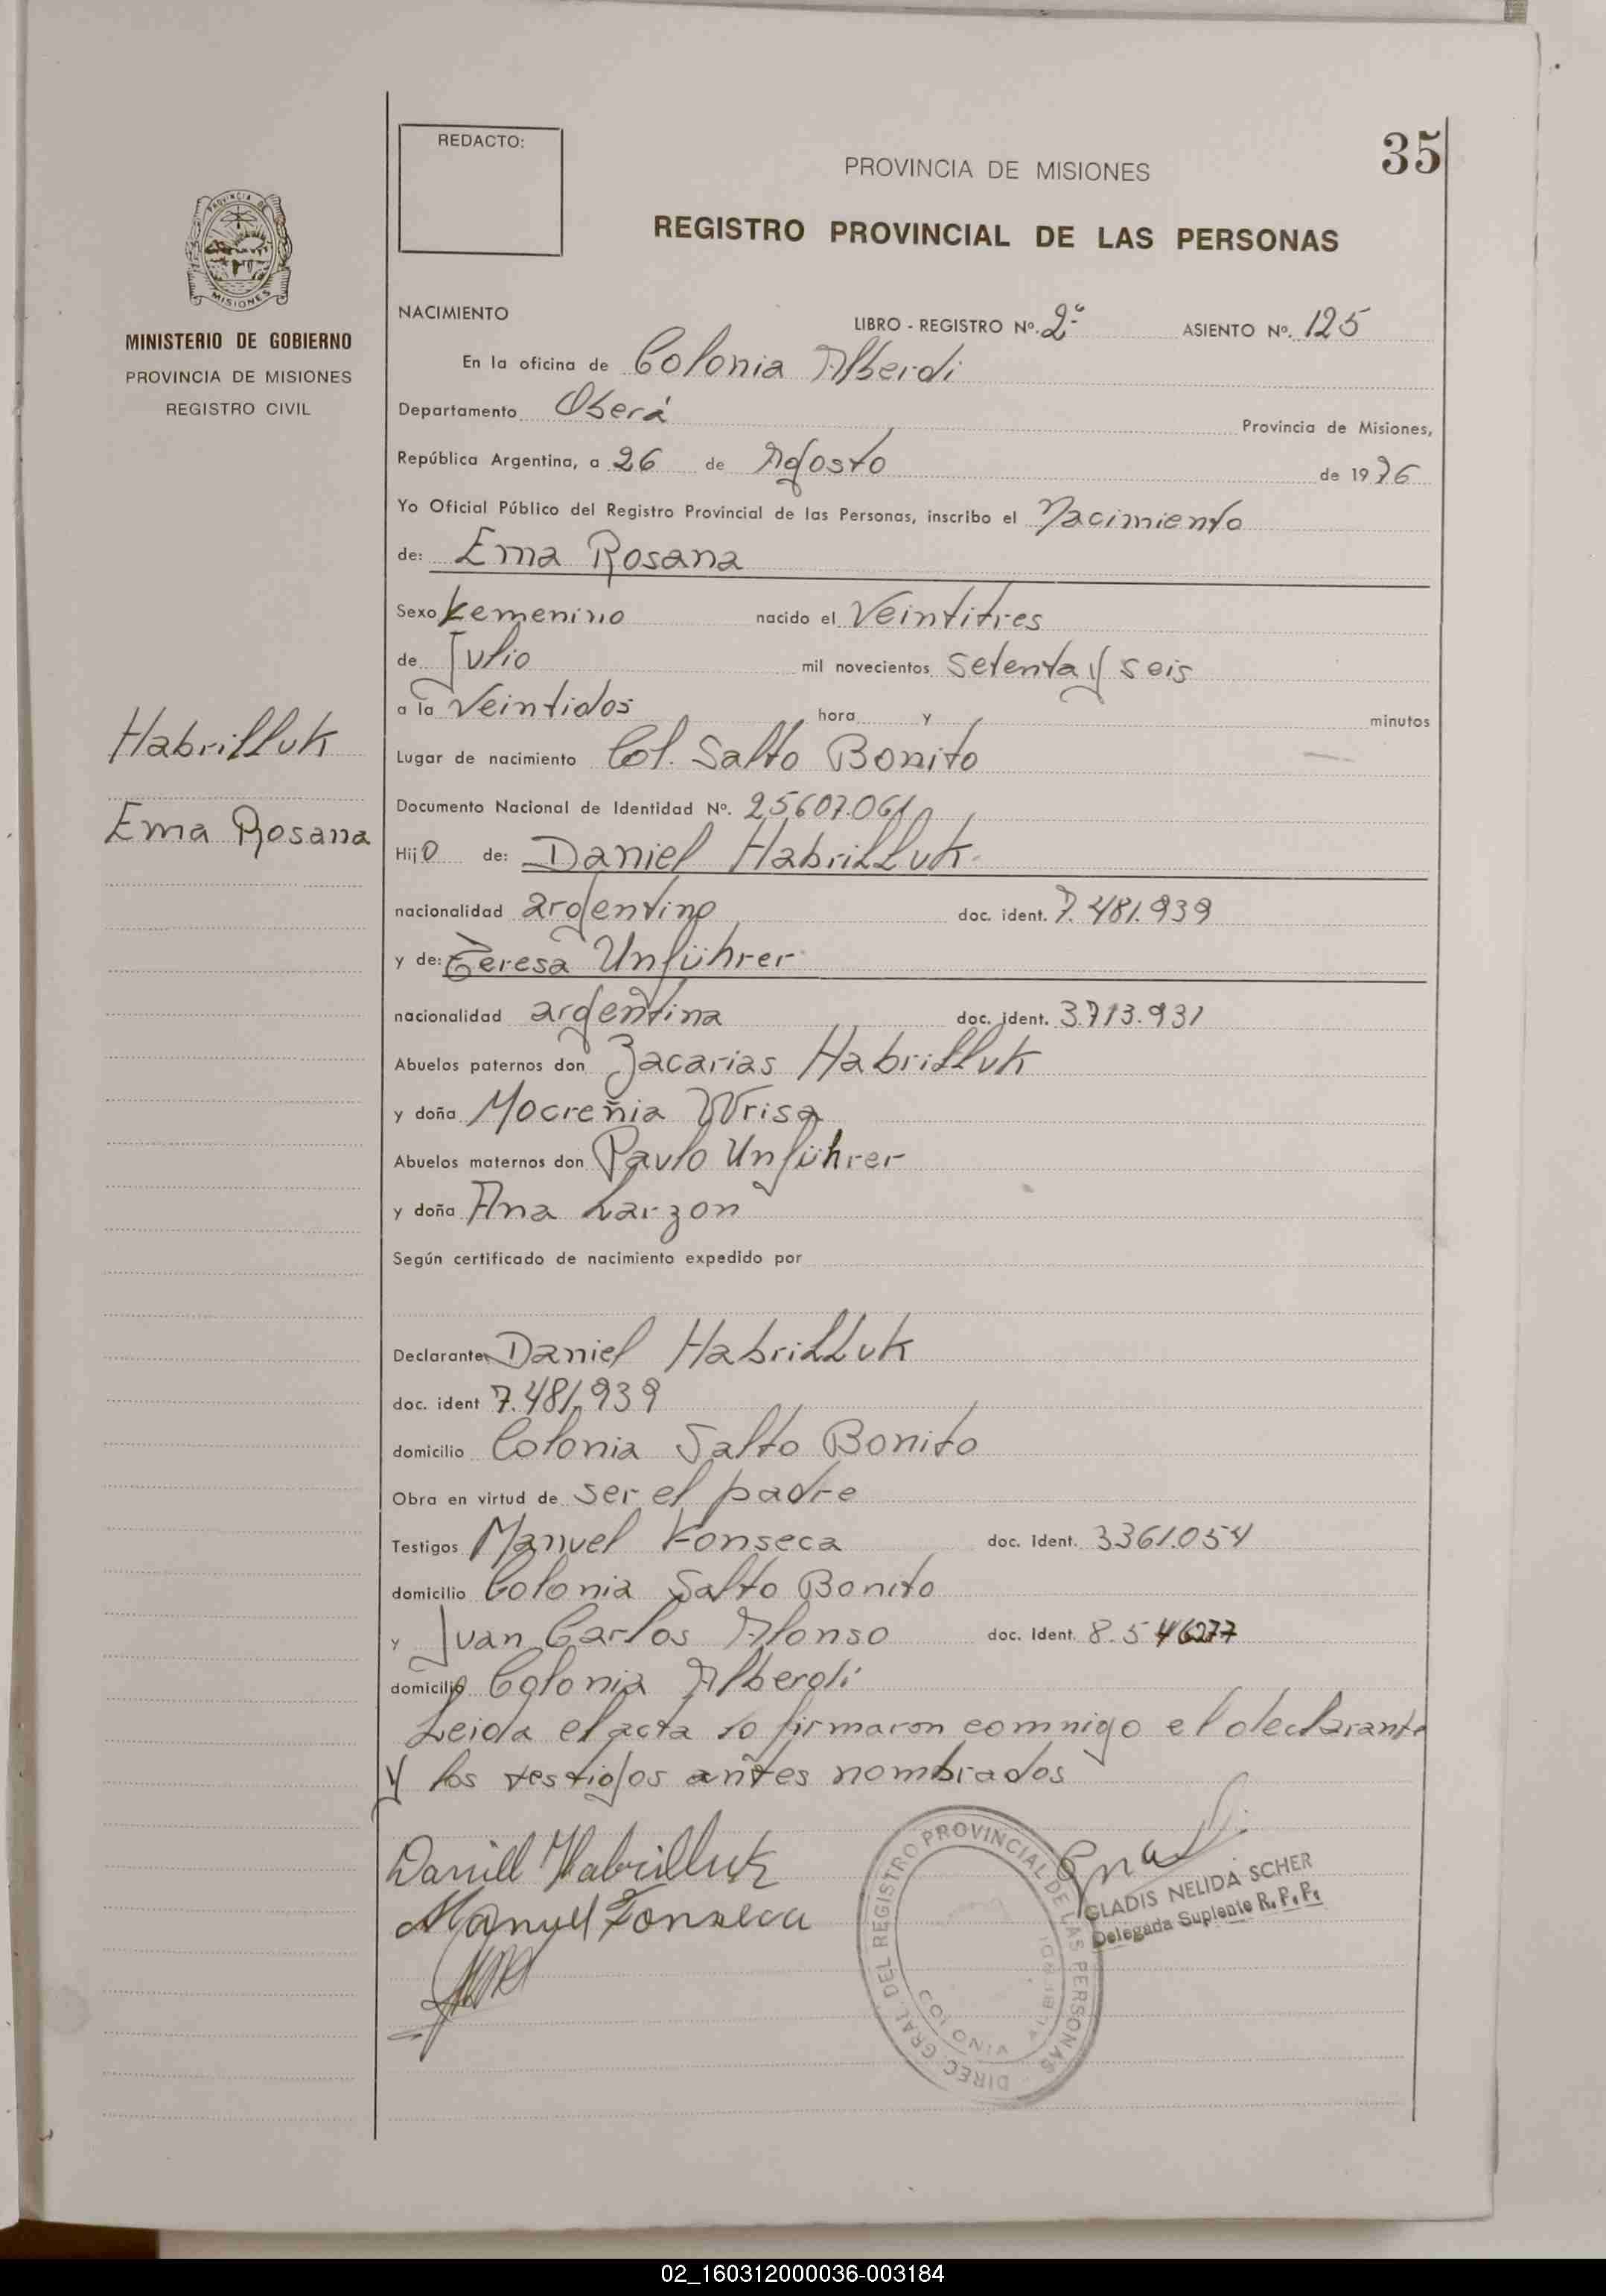 REDACTO:
35
PROVINCIA DE MISIONES
REGISTRO PROVINCIAL DE LAS PERSONAS
PROVINCIA DE
MISIONES
MINISTERIO DE GOBIERNO
PROVINCIA DE MISIONES
REGISTRO CIVIL
NACIMIENTO LIBRO - REGISTRO Nº. 2º ASIENTO Nº. 125
En la oficina de Colonia Alberdi
Departamento Oberá Provincia de Misiones,
República Argentina, a 26 de Agosto de 1976
Yo Oficial Público del Registro Provincial de las Personas, inscribo el Nacimiento
de: Ema Rosana
Sexo Femenino nacido el Veintitres
de Julio mil novecientos setenta y seis
a la Veintidos hora y minutos
Habrilluk
Lugar de nacimiento Col. Salto Bonito
Ema Rosana
Documento Nacional de Identidad Nº. 25607.061
Hijo de: Daniel Habrilluk
nacionalidad argentino doc. ident. 7.481.939
y de: Teresa Unführer
nacionalidad argentina doc. ident. 3.713.931
Abuelos paternos don Zacarias Habrilluk
y doña Mocreñia Wrisa
Abuelos maternos don Paulo Unführer
y doña Ana Larzon
Según certificado de nacimiento expedido por
Declarante Daniel Habrilluk
doc. ident 7.481.939
domicilio Colonia Salto Bonito
Obra en virtud de ser el padre
Testigos Manuel Fonseca doc. ident. 3361.054
domicilio Colonia Salto Bonito
y Juan Carlos Alonso doc. ident. 8.546277
domicilio Colonia Alberdi
Leida el acta lo firmaron comnigo el declarante
y los testigos antes nombrados
Daniell Habrilluk
Manuel Fonseca
DIREC. GRAL. DEL REGISTRO PROVINCIAL DE LAS PERSONAS
COLONIA ALBERDI
GLADIS NELIDA SCHER
Delegada Suplente R. P. P.
02_160312000036-003184